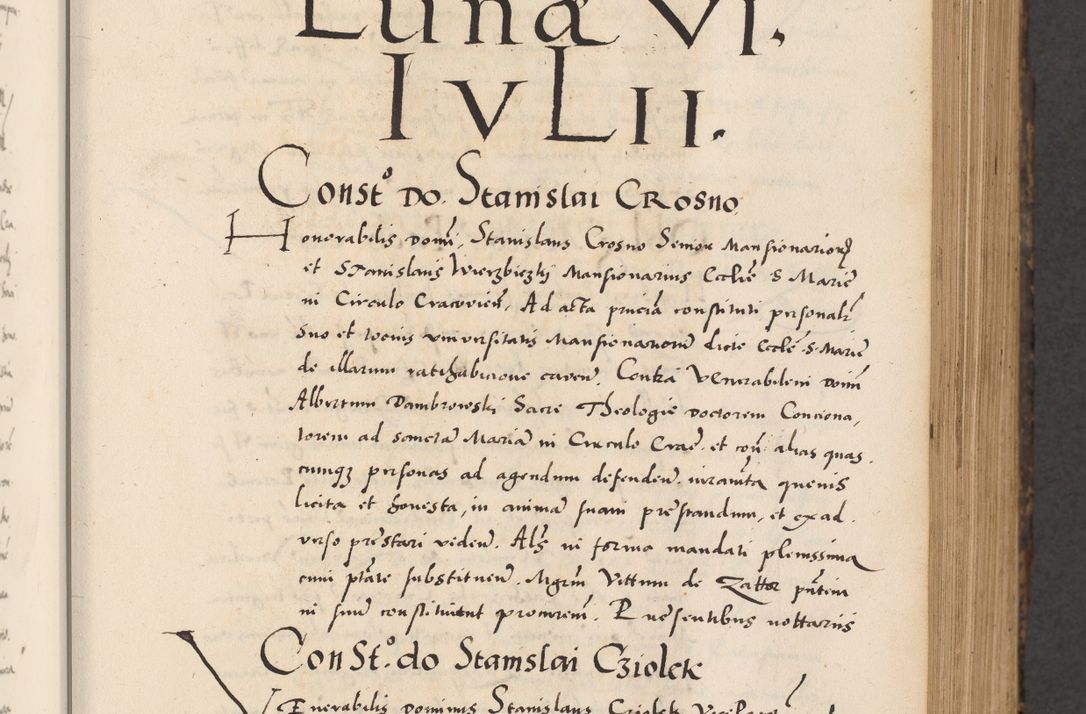 Lunæ VI.
IVLII.
Constº DO. Stanislai CROSNO
Honorabilis Domī, Stanislaus Crosno Senior Mansionarioꝝ
et Stanislaus Wierzbiezki Mansionarius Eccliē S Mariē
in Circulo Cracovień. Ad acta prñcia constituti personalr
suo et tocius universitatis Mansionariorū dicte Ecclē S. Mariē
de illarum ratihabicione caveñ. Contra Venerabilem Domī
Albertum Dambrowski Sacre Theologie Doctorem Conciona,
torem ad sanctā Mariā in Circulo Craē. et coñ alias quas
cumqȝ personas ad agendum defendeñ. iuramta quevis
licita et honesta, in animā suam prēstandum, et ex ad
verso prēstari videñ. Als in forma mandati plenissima
cum ptāte substitueñ. Mgrm̄ Vittum de Zattor pñtem
in suū constituunt procurem̄. Presentibus nottariis
ConSt.º do Stanislai Cziolek
Venerabilis Dominus Stanislaus Cziolek